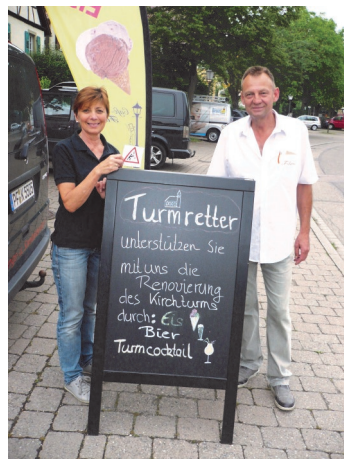 Turmretter
unterstützen Sie
mit uns die
Renovierung
des Kirchturms
durch: Eis
Bier
Turmcocktail